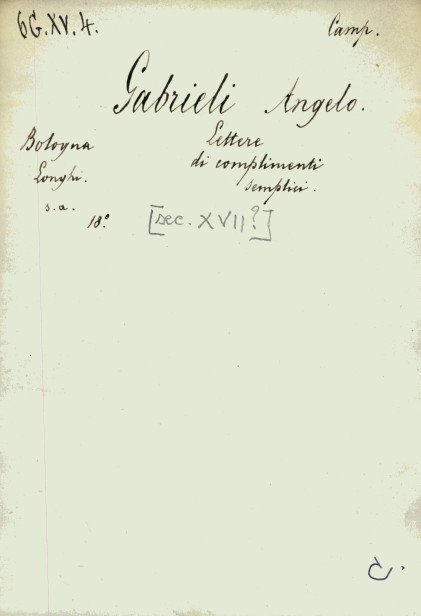 6G.XV.4.
Camp.
Gabrieli Angelo.
Bologna
Longhi.
s.a.
18°
Lettere
di complimenti
semplici.
[sec. XVII?]